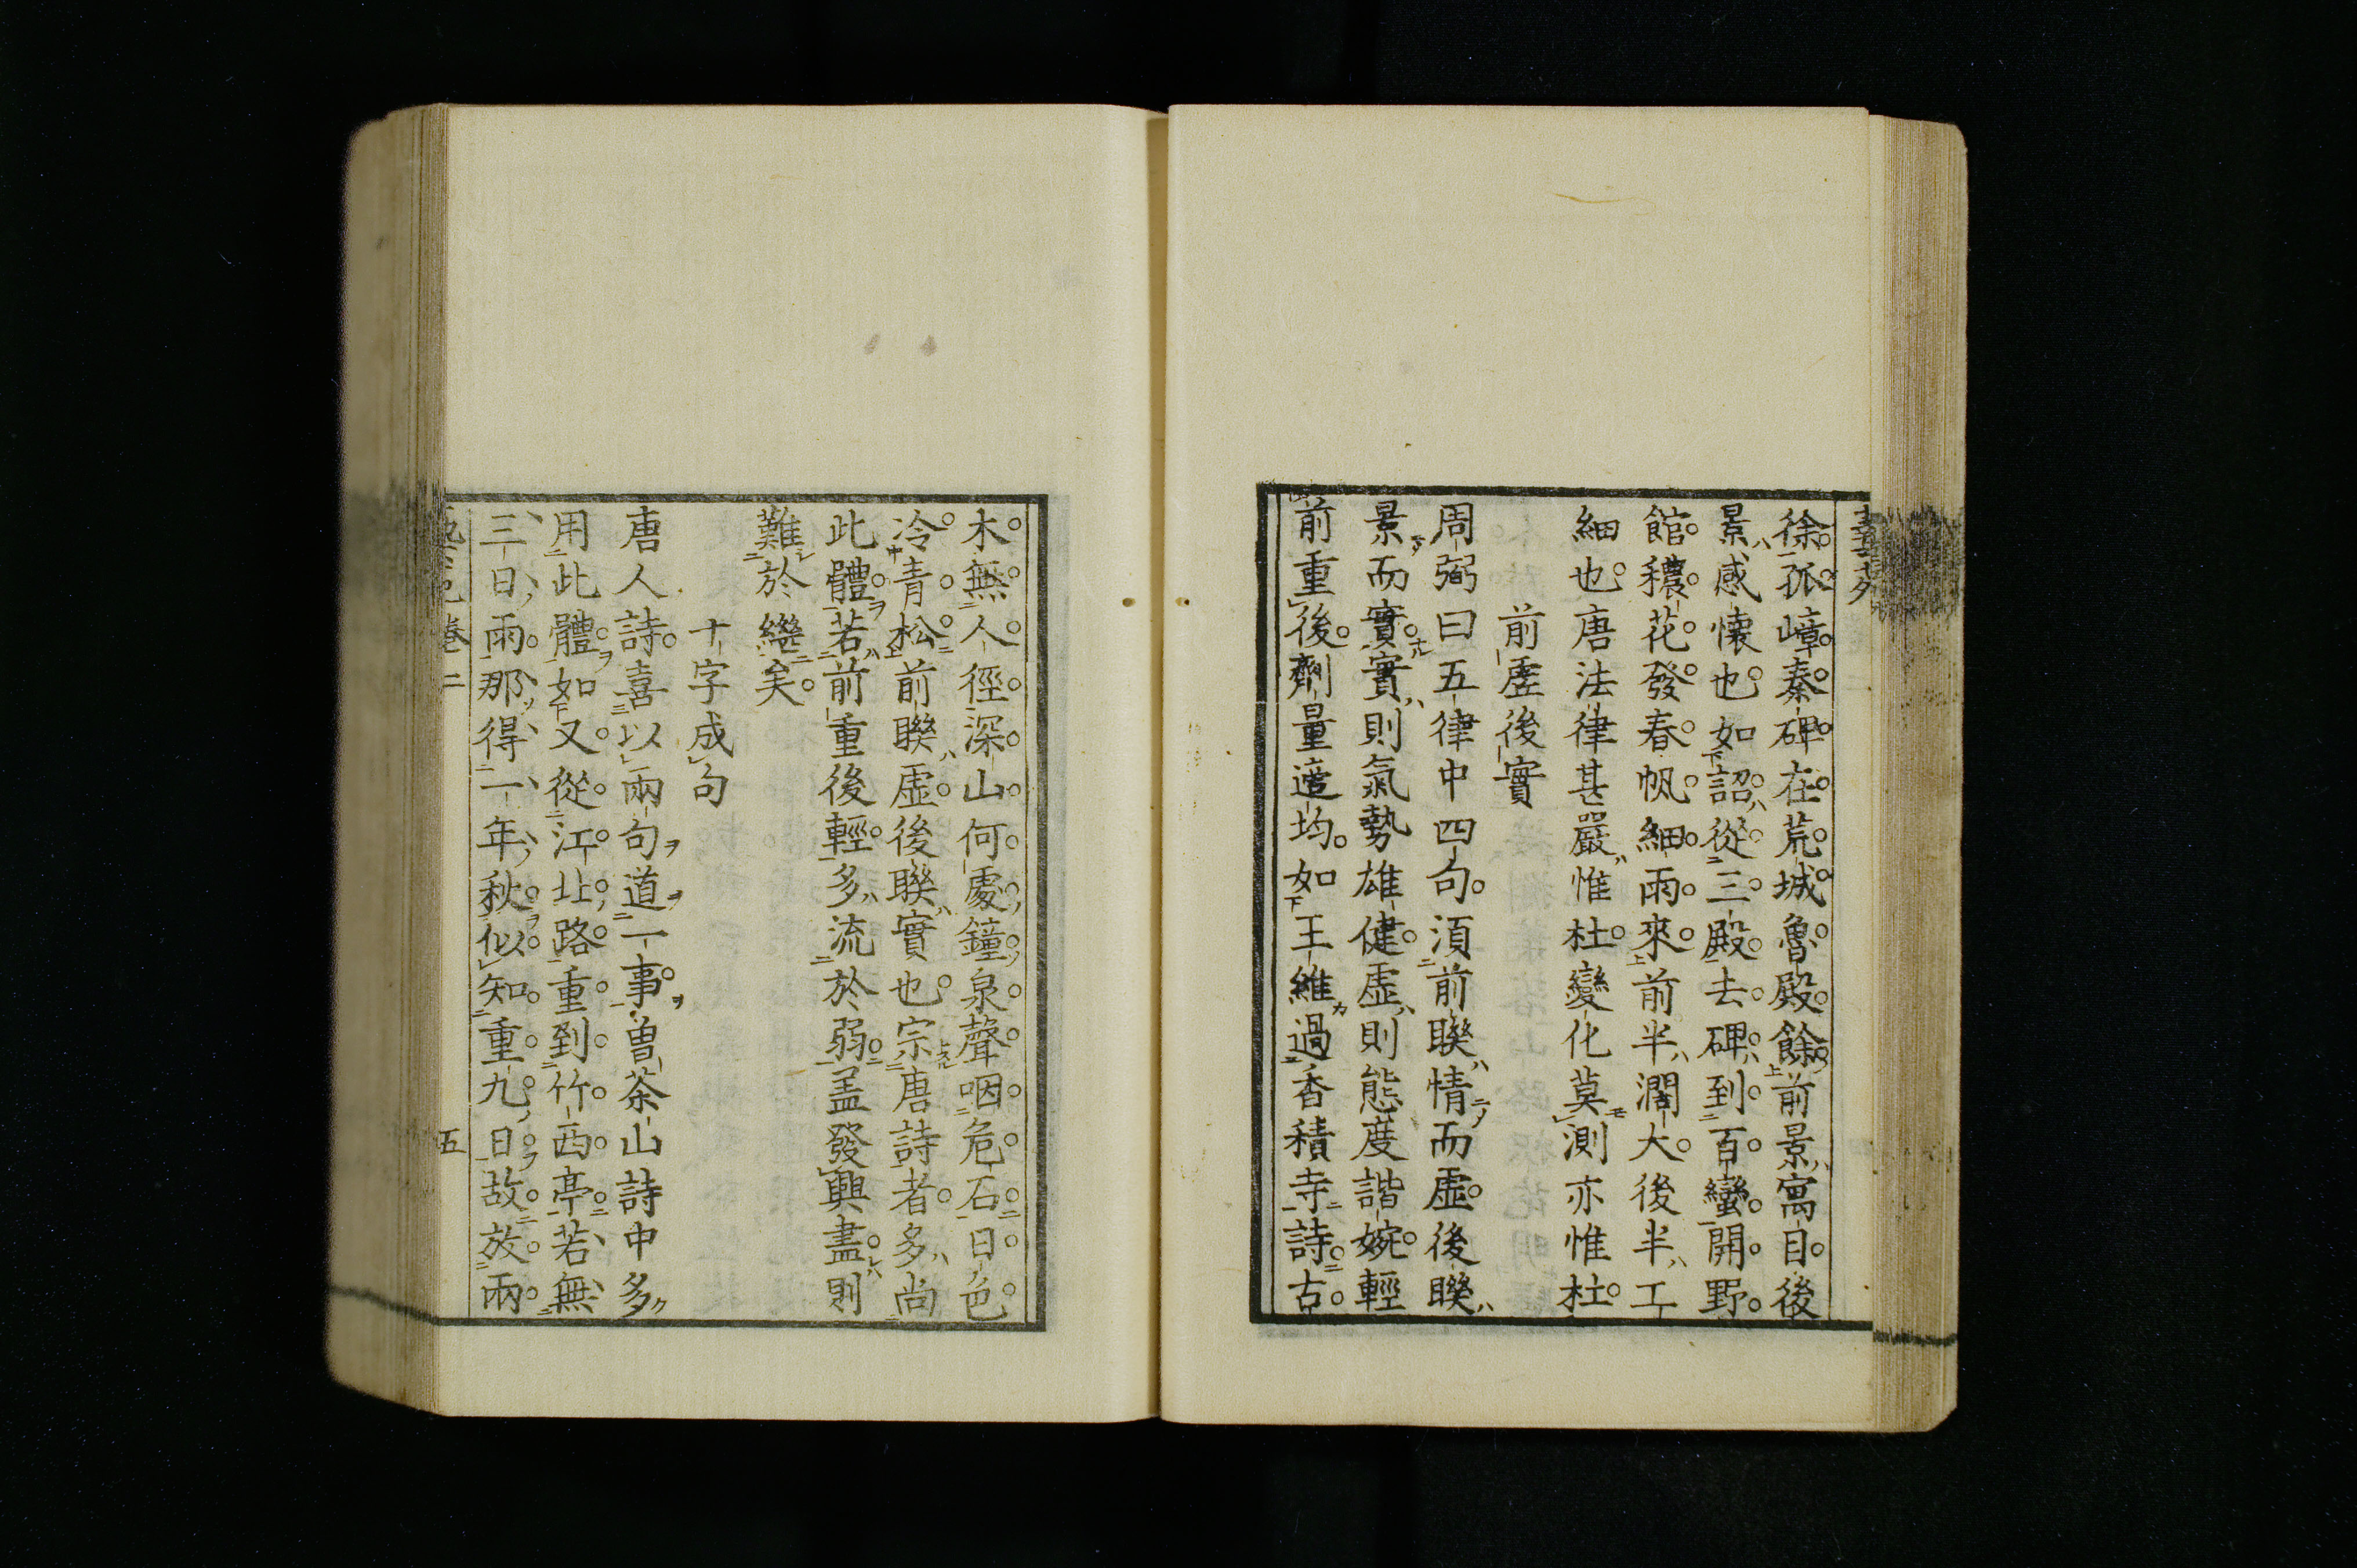 徐孤嶂秦碑在荒城魯殿餘前景寓目後
景感懷也如詔從三殿去碑到百蠻開野
館穠花發春帆細雨來前半濶大後半工
細也唐法律甚嚴惟杜變化莫測亦惟杜
前虛後實
周弼曰五律中四句須前聯情而虛後聯
景而實實則氣勢雄健虛則態度諧婉輕
前重後劑量適均如王維過香積寺詩古
木無人徑深山何處鐘泉聲咽危石日色
冷青松前聯虛後聯實也宗唐詩者多尚
此體若前重後輕多流於弱盖發興盡則
難於繼矣
十字成句
唐人詩喜以兩句道一事曾茶山詩中多
用此體如又從江北路重到竹西亭若無
三日雨那得一年秋似知重九日故放兩
卷二
五